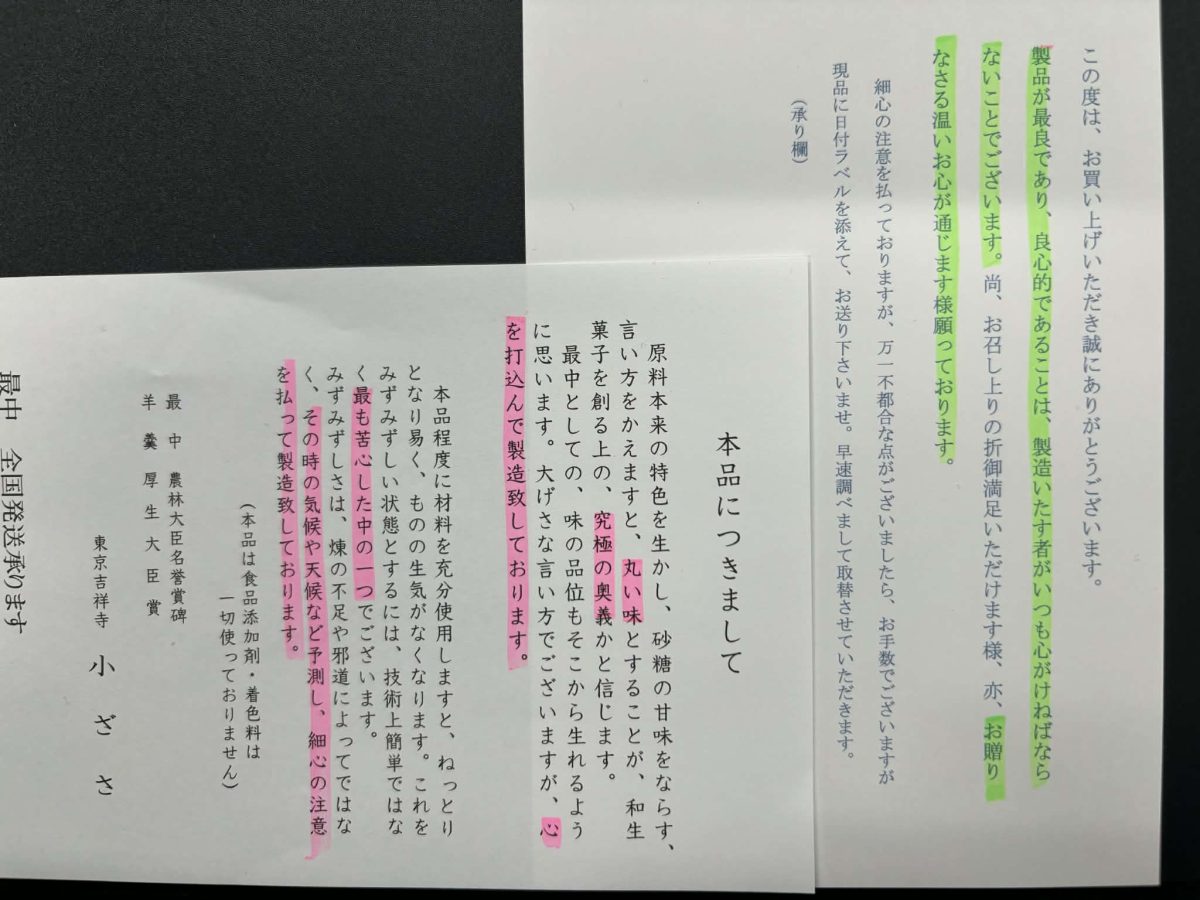 この度は、お買い上げいただき誠にありがとうございます。
製品が最良であり、良心的であることは、製造いたす者がいつも心がけねばなら
ないことでございます。尚、お召し上りの折御満足いただけます様、亦、お贈り
なさる温いお心が通じます様願っております。
細心の注意を払っておりますが、万一不都合な点がございましたら、お手数でございますが
現品に日付ラベルを添えて、お送り下さいませ。早速調べまして取替させていただきます。
(承り欄)
本品につきまして
原料本来の特色を生かし、砂糖の甘味をならす、
言い方をかえますと、丸い味とすることが、和生
菓子を創る上の、究極の奥義かと信じます。
最中としての、味の品位もそこから生れるよう
に思います。大げさな言い方でございますが、心
を打込んで製造致しております。
本品程度に材料を充分使用しますと、ねっとり
となり易く、ものの生気がなくなります。これを
みずみずしい状態とするには、技術上簡単ではな
く最も苦心した中の一つでございます。
みずみずしさは、煉の不足や邪道によってではな
く、その時の気候や天候など予測し、細心の注意
を払って製造致しております。
(本品は食品添加剤・着色料は
一切使っておりません)
最中 農林大臣名誉賞碑
羊羹厚生大臣賞
東京吉祥寺 小ざさ
最中 全国発送承ります